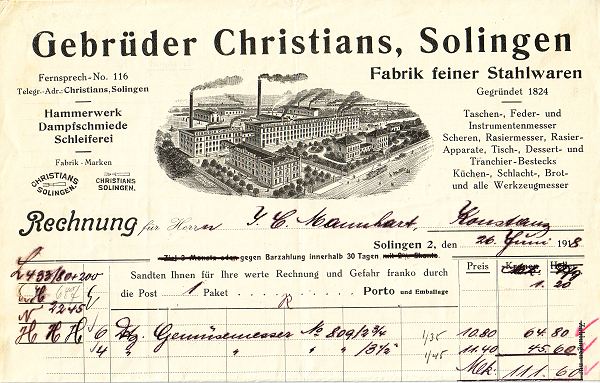 Gebrüder Christians, Solingen
Fernsprech-No. 116
Telegr.-Adr.: Christians, Solingen
Hammerwerk
Dampfschmiede
Schleiferei
Fabrik-Marken
CHRISTIANS SOLINGEN.
CHRISTIANS SOLINGEN.
Fabrik feiner Stahlwaren
Gegründet 1824
Taschen-, Feder- und
Instrumentenmesser
Scheren, Rasiermesser, Rasier-
Apparate, Tisch-, Dessert- und
Tranchier-Bestecks
Küchen-, Schlacht-, Brot-
und alle Werkzeugmesser
Rechnung für Herrn J. C. Mannhart, Konstanz
Solingen 2, den 26. Juni 1918
Ziel 3 Monate oder gegen Barzahlung innerhalb 30 Tagen mit 2% Skonto.
Sandten Ihnen für Ihre werte Rechnung und Gefahr franko durch
die Post 1 Paket Porto und Emballage
Preis
1. 20
N 2245
H H H 6 Dtz. Gemüsemesser No 809/2¾ 1/35 10.80 64.80
4 " " " /3½ 1/45 11.40 45.60
Mk. 111.60